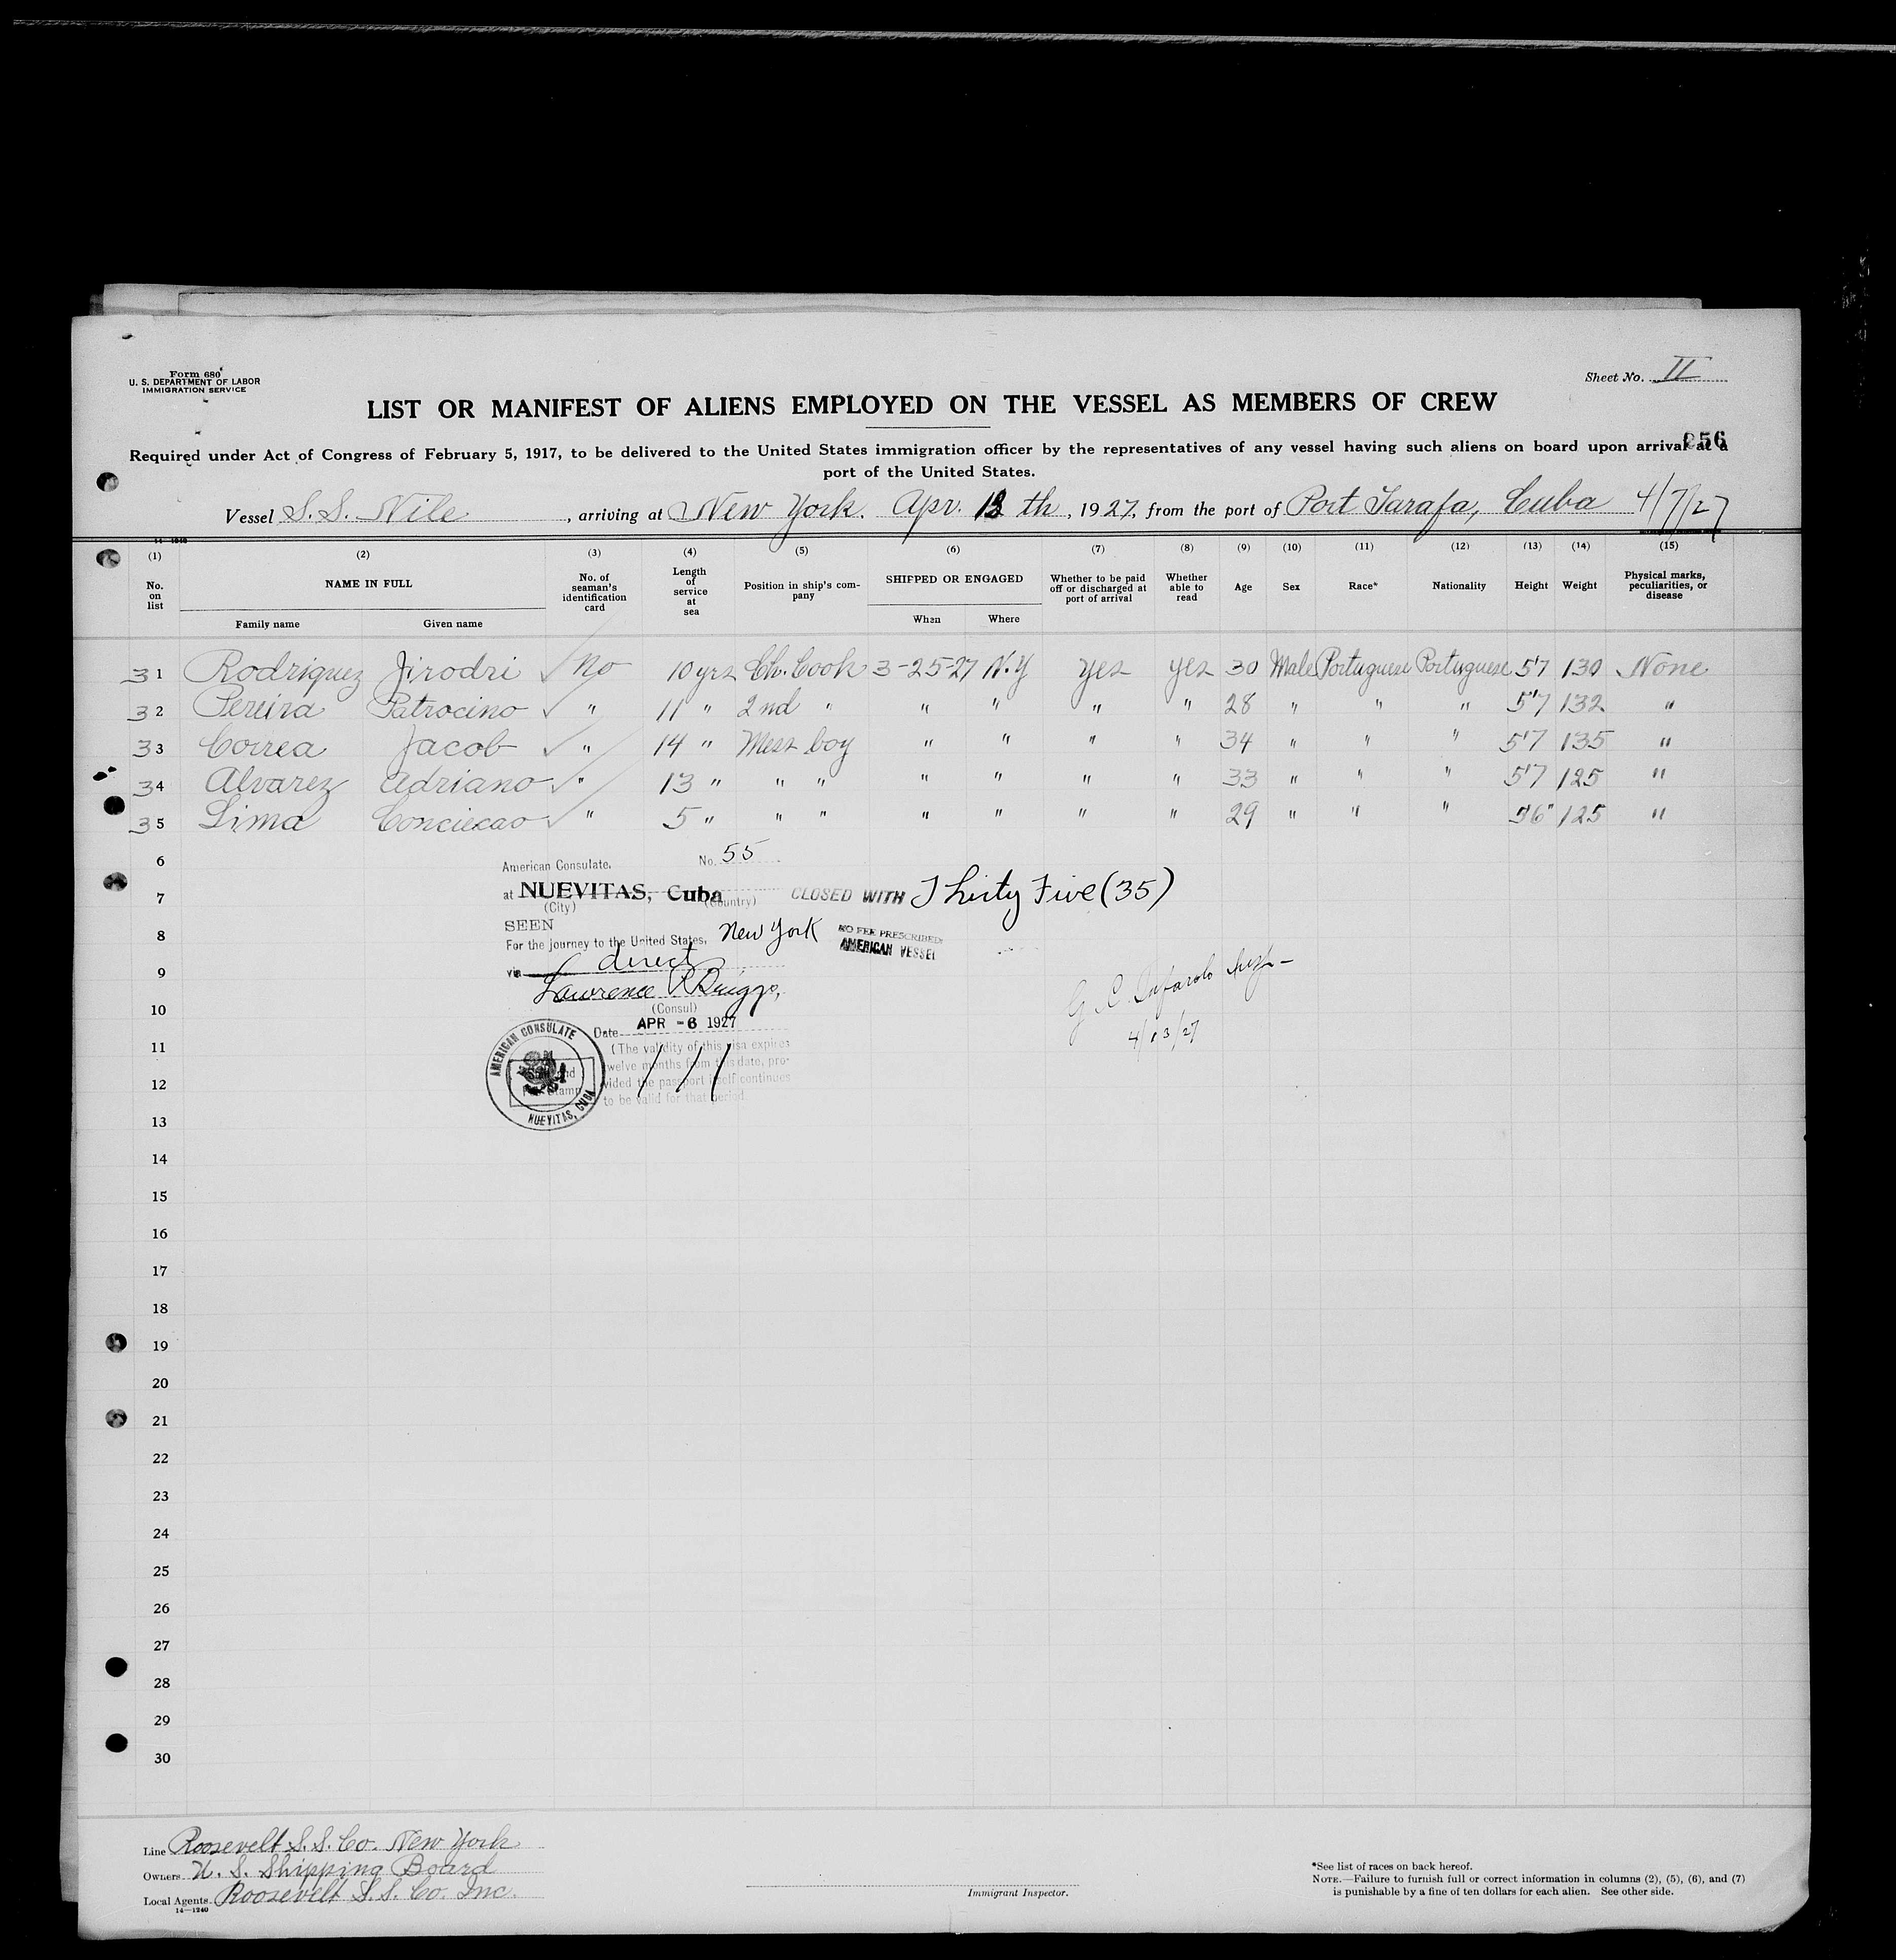 Form 680
U. S. DEPARTMENT OF LABOR
IMMIGRATION SERVICE
Sheet No. II
LIST OR MANIFEST OF ALIENS EMPLOYED ON THE VESSEL AS MEMBERS OF CREW
056
Required under Act of Congress of February 5, 1917, to be delivered to the United States immigration officer by the representatives of any vessel having such aliens on board upon arrival at a
port of the United States.
Vessel S.S. Nile, arriving at New York. Apr. 13 th, 1927, from the port of Port Tarafa, Cuba 4/7/27
(1) (2) (3) (4) (5) (6) (7) (8) (9) (10) (11) (12) (13) (14) (15)
No. on list NAME IN FULL No. of seaman's identification card Length of service at sea Position in ship's company SHIPPED OR ENGAGED Whether to be paid off or discharged at port of arrival Whether able to read Age Sex Race* Nationality Height Weight Physical marks, peculiarities, or disease
Family name Given name When Where
31 Rodriquez Jirodri ✓ No 10 yrs Ch. Cook 3-25-27 N.Y Yes Yes 30 Male Portuguese Portuguese 5'7 130 None
32 Pereira Patrocino ✓ " 11 " 2nd " " " " " 28 " " " 5'7 132 "
33 Correa Jacob ✓ " 14 " Mess boy " " " " 34 " " " 5'7 135 "
34 Alvarez Adriano ✓ " 13 " " " " " " " 33 " " " 5'7 125 "
35 Lima Conciecao ✓ " 5 " " " " " " " 29 " " " 5'6" 125 "
6
American Consulate, No. 55
7
at NUEVITAS, Cuba CLOSED WITH Thirty Five (35)
(City) (Country)
8
SEEN
For the journey to the United States, New York NO FEE PRESCRIBED.
AMERICAN VESSEL
9
via direct
Lawrence P. Briggs,
10
(Consul)
Date APR -6 1927
4/13/27
11
(The validity of this visa expires
twelve months from this date, pro-
12
vided the passport itself continues
to be valid for that period.
AMERICAN CONSULATE
NUEVITAS, CUBA
13
14
15
16
17
18
19
20
21
22
23
24
25
26
27
28
29
30
Line Roosevelt S.S. Co. New York
Owners U. S. Shipping Board
Local Agents Roosevelt S.S. Co. Inc.
14—1240
Immigrant Inspector.
*See list of races on back hereof.
NOTE.—Failure to furnish full or correct information in columns (2), (5), (6), and (7)
is punishable by a fine of ten dollars for each alien. See other side.